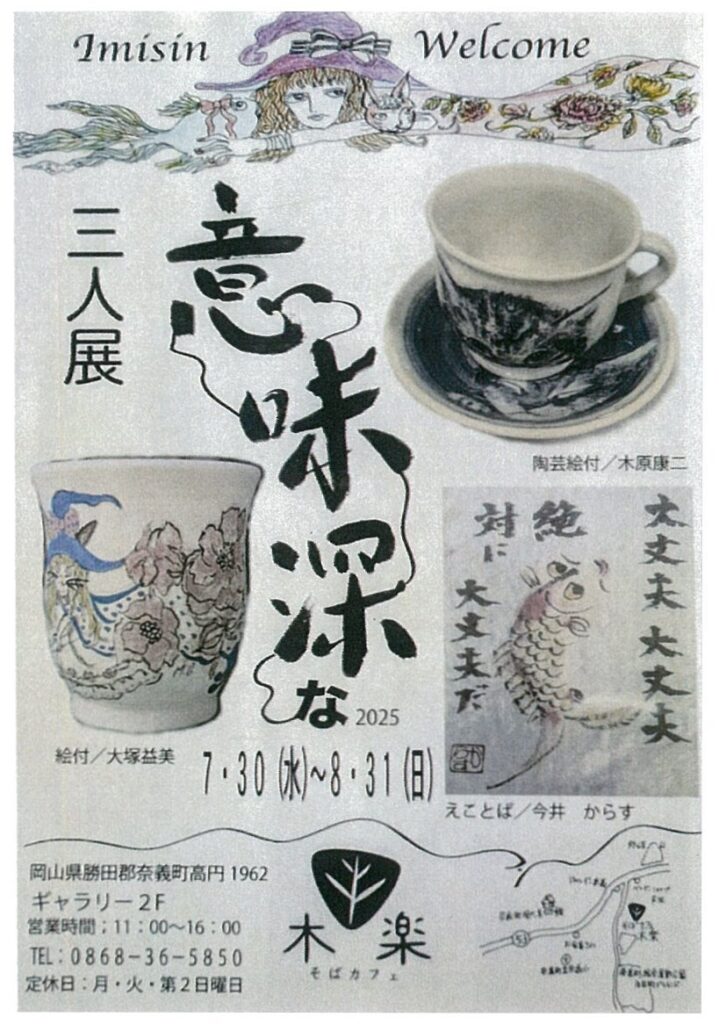 Imisin Welcome
三人展
意味深な
2025
陶芸絵付／木原康二
大丈夫 大丈夫
絶対に
大丈夫だ
絵付／大塚益美
7・30(水)～8・31(日)
えことば／今井 からす
岡山県勝田郡奈義町高円 1962
ギャラリー２F
営業時間；11：00～16：00
TEL：0868-36-5850
定休日：月・火・第２日曜日
木楽
そばカフェ
53
木楽